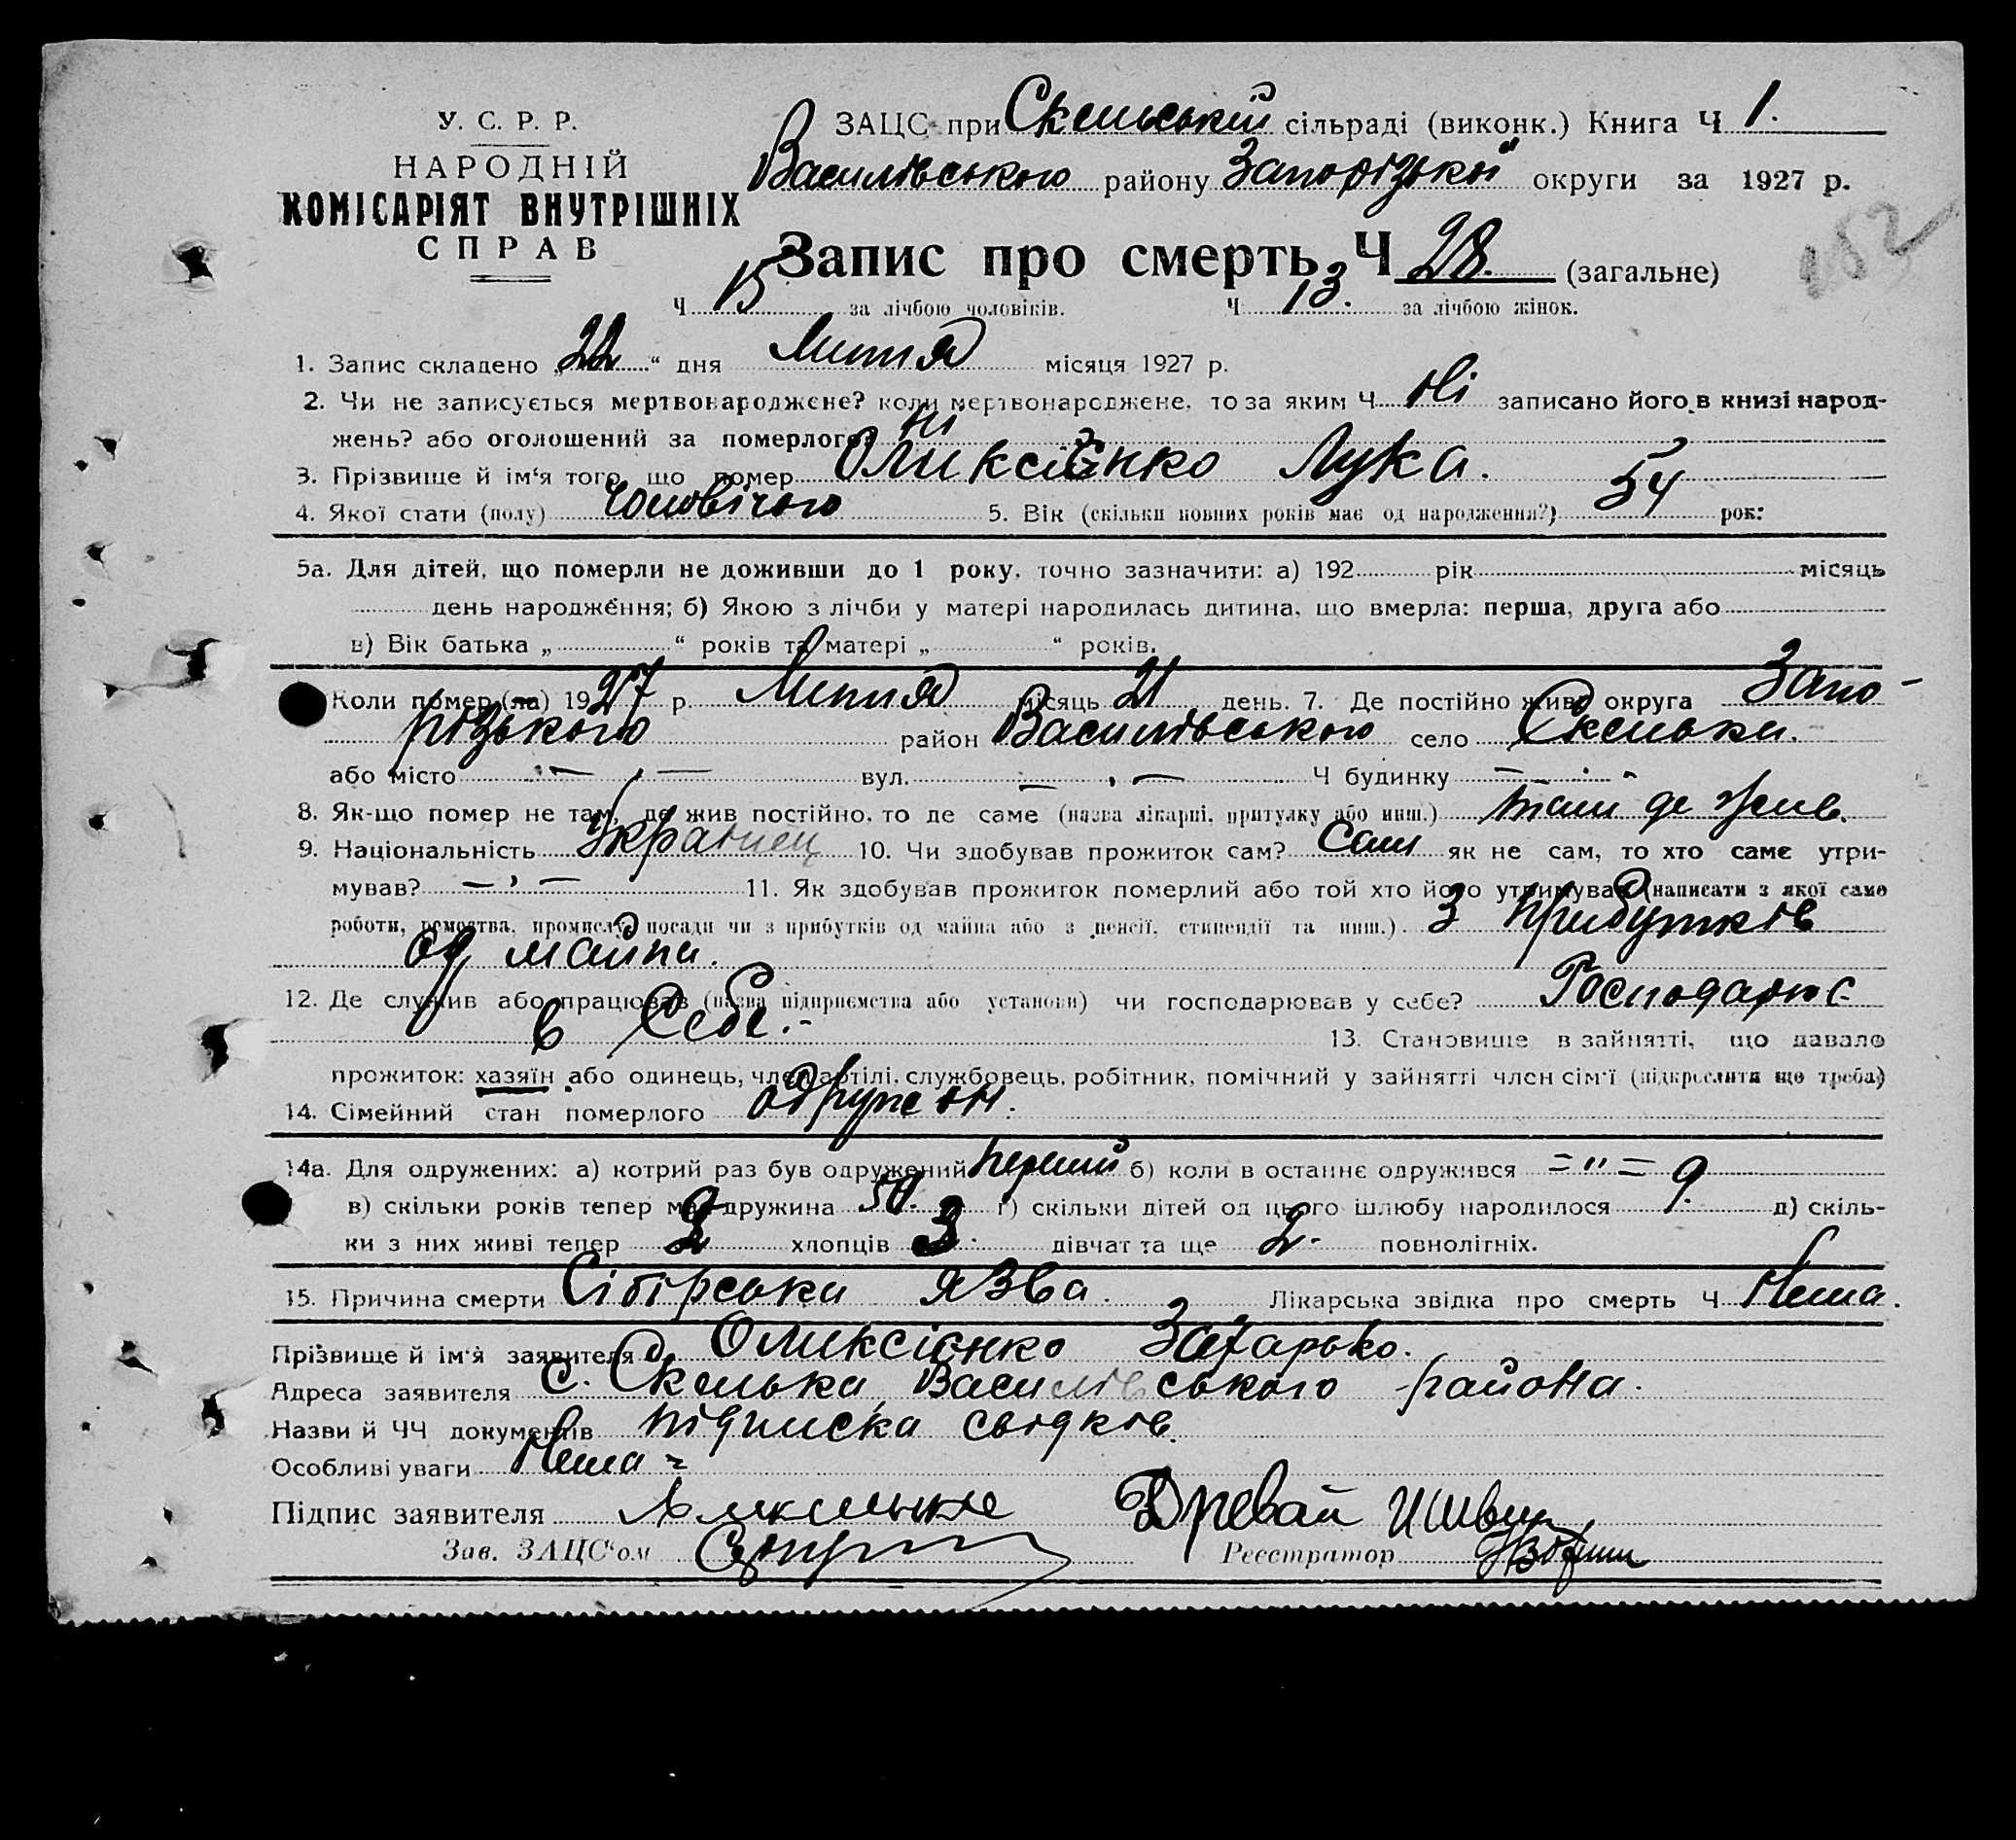 У. С. Р. Р.
НАРОДНІЙ
КОМІСАРІЯТ ВНУТРІШНІХ
СПРАВ
ЗАЦС при Скельській сільраді (виконк.) Книга Ч 1.
Василівського району Запорізької округи за 1927 р.
Запис про смерть Ч 28. (загальне)
Ч 15 за лічбою чоловіків. Ч 13. за лічбою жінок.
1. Запис складено „22“ дня Липня місяця 1927 р.
2. Чи не записується мертвонароджене? коли мертвонароджене, то за яким Ч Ні записано його в книзі народ-
жень? або оголошений за померлого? Ні
3. Прізвище й ім‘я того, що помер Оликсієнко Лука.
4. Якої стати (полу) Чоловічого 5. Вік (скільки повних років має од народження?) 54 рок:
5а. Для дітей, що померли не доживши до 1 року, точно зазначити: а) 192 рік місяць
день народження; б) Якою з лічби у матері народилась дитина, що вмерла: перша, друга або
в) Вік батька „ “ років та матері „ “ років.
Коли помер (ла) 1927 р. Липня місяць 21 день. 7. Де постійно жив округа Запо-
різького район Василівського село Скельки.
або місто — , — вул. — , — Ч будинку — . -
8. Як-що помер не там, де жив постійно, то де саме (назва лікарні, притулку або инш.) там де жив.
9. Національність Українец 10. Чи здобував прожиток сам? Сам як не сам, то хто саме утри-
мував? — , — 11. Як здобував прожиток померлий або той хто його утримував (написати з якої саме
роботи, ремества, промислу, посади чи з прибутків од майна або з пенсії, стипендії та инш.) З прибутків
од майна.
12. Де служив або працював (назва підприємства або установи) чи господарював у себе? Господарює
в Себе.- 13. Становище в зайнятті, що давало
прожиток: хазяїн або одинець, член артілі, службовець, робітник, помічний у зайнятті член сім‘ї (підкреслити що треба)
14. Сімейний стан померлого одружен.
14а. Для одружених: а) котрий раз був одружений перший б) коли в останнє одружився = „ =
в) скільки років тепер має дружина 50. г) скільки дітей од цього шлюбу народилося 9. д) скіль-
ки з них живі тепер 2 хлопців 3. дівчат та ще 2. повнолітніх.
15. Причина смерти Сібірська язва. Лікарська звідка про смерть Ч Нема.
Прізвище й ім‘я заявителя Оликсієнко Захарько.
Адреса заявителя С. Скелька, Василівського района.
Назви й ЧЧ документів підписка свідків.
Особливі уваги Нема =
Підпис заявителя Древай
Зав. ЗАЦС‘ом Реєстратор